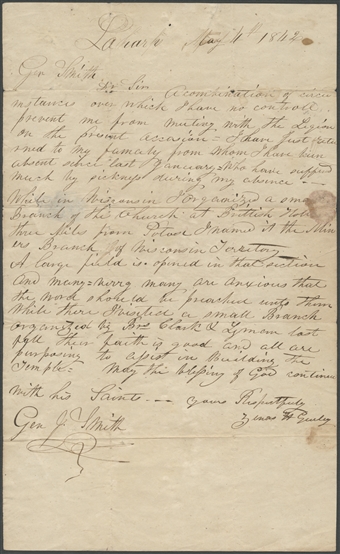 Laharp May 4th 1842
Gen Smith
Dr Sir A combination of circu
mstances over which I have no controll
prevent me from meeting with the Legion
on the present occasion - I have just retu
rned to my famaly from whom I have been
absent since last January Who have suffered
much by sickness during my absence -
While in Wisconsin I organized a small
Branch of the Church at British Hollow
three Miles from Potosi I named it the Min
ers Branch of Wisconsin Territory
A large field is opened in that section
and many - many are anxious that
the word should be preached unto them
While there I visited a small Branch
organized by Brn Clark & Lyman last
fall Their faith is good and all are
purposing to assist in building the
Temple - May the blessing of God continue
with his Saints -- yours Respectfully
Zenos H Gurley
Gen J Smith